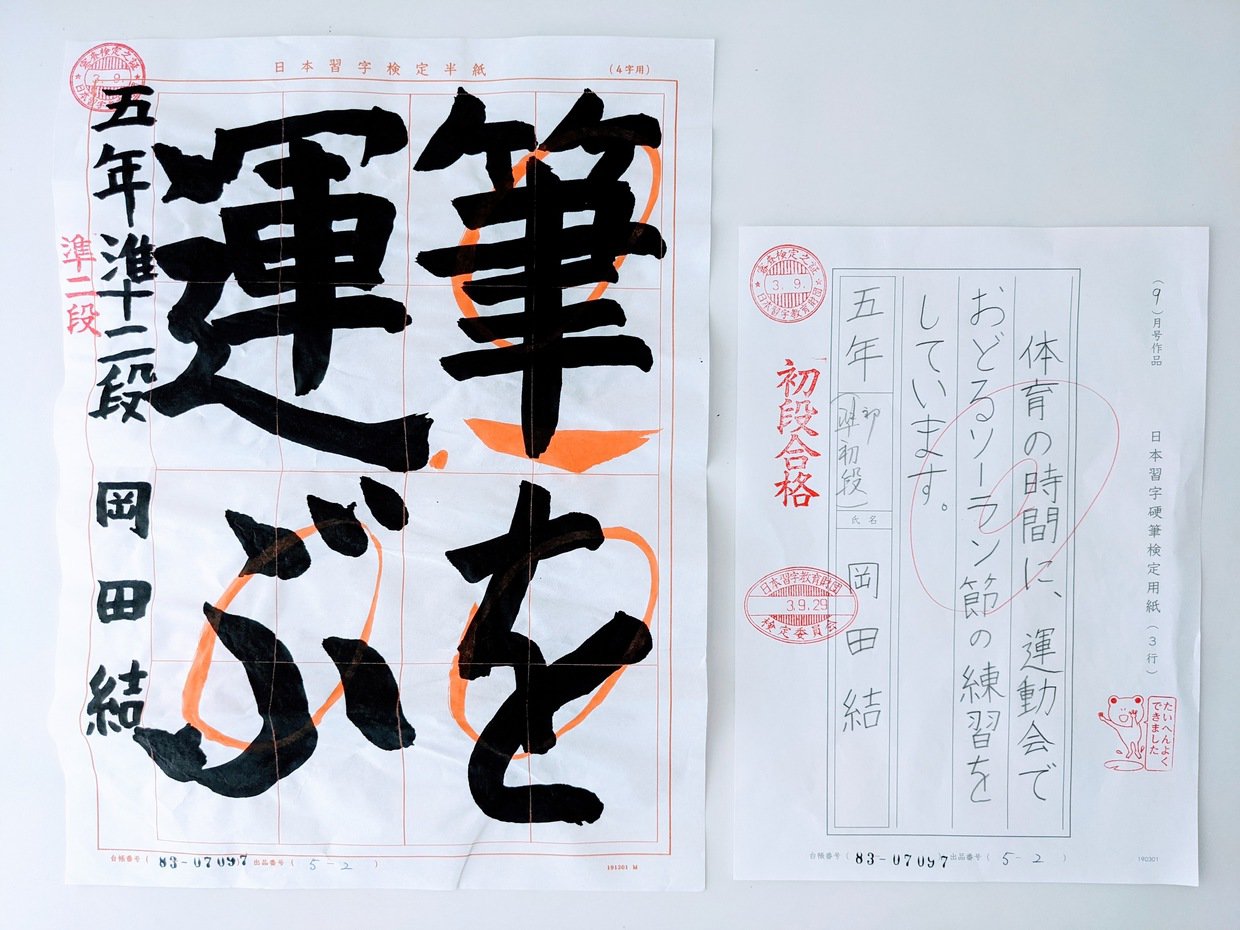 日本習字検定半紙
(4字用)
審査検定之証
3.9.
筆を
運ぶ
五年 準二段 岡田結
準二段
台帳番号( 83-07097 ) 出品番号( 5-2 )
191301 M
(9)月号作品
日本習字硬筆検定用紙(3行)
体育の時間に、運動会で
おどるソーラン節の練習を
しています。
五年
初段
氏名
岡田結
審査検定之証
3.9.
日本習字教育財団
初段合格
日本習字教育財団
3.9.29
検定委員会
たいへんよく
できました
台帳番号( 83-07097 ) 出品番号( 5-2 )
190301